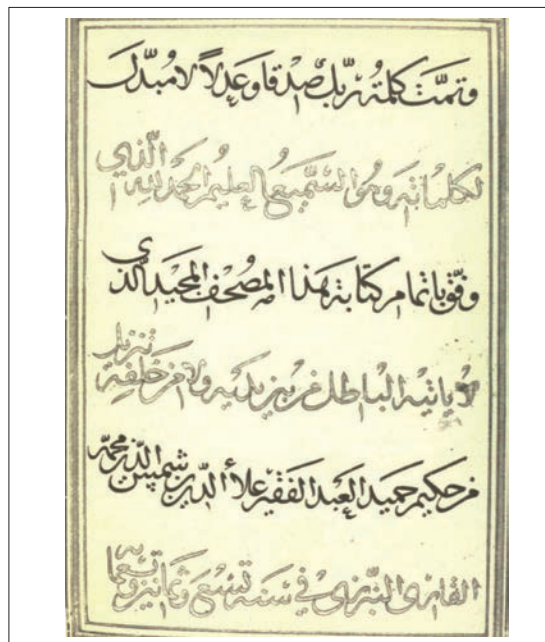 وتمت كلمة ربك صدقا وعدلاً لا مبدل
لكلماته وهو السميع العليم الحمد لله الذي
وفق باتمام كتابة هذا المصحف المجيد الذي
لا یاتیه الباطل من بین یدیه ولا من خلفه تنزیل
من حکیم حمید العبد الفقیر علأ الدین بن شمس الدین محمد
القاری التبریزی فی سنه تسع وثمانین وتسعمایه